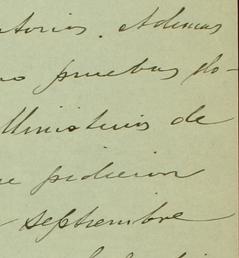 atorios. Ademas
no pruebas do-
Ministerio de
ue pidieron
septiembre